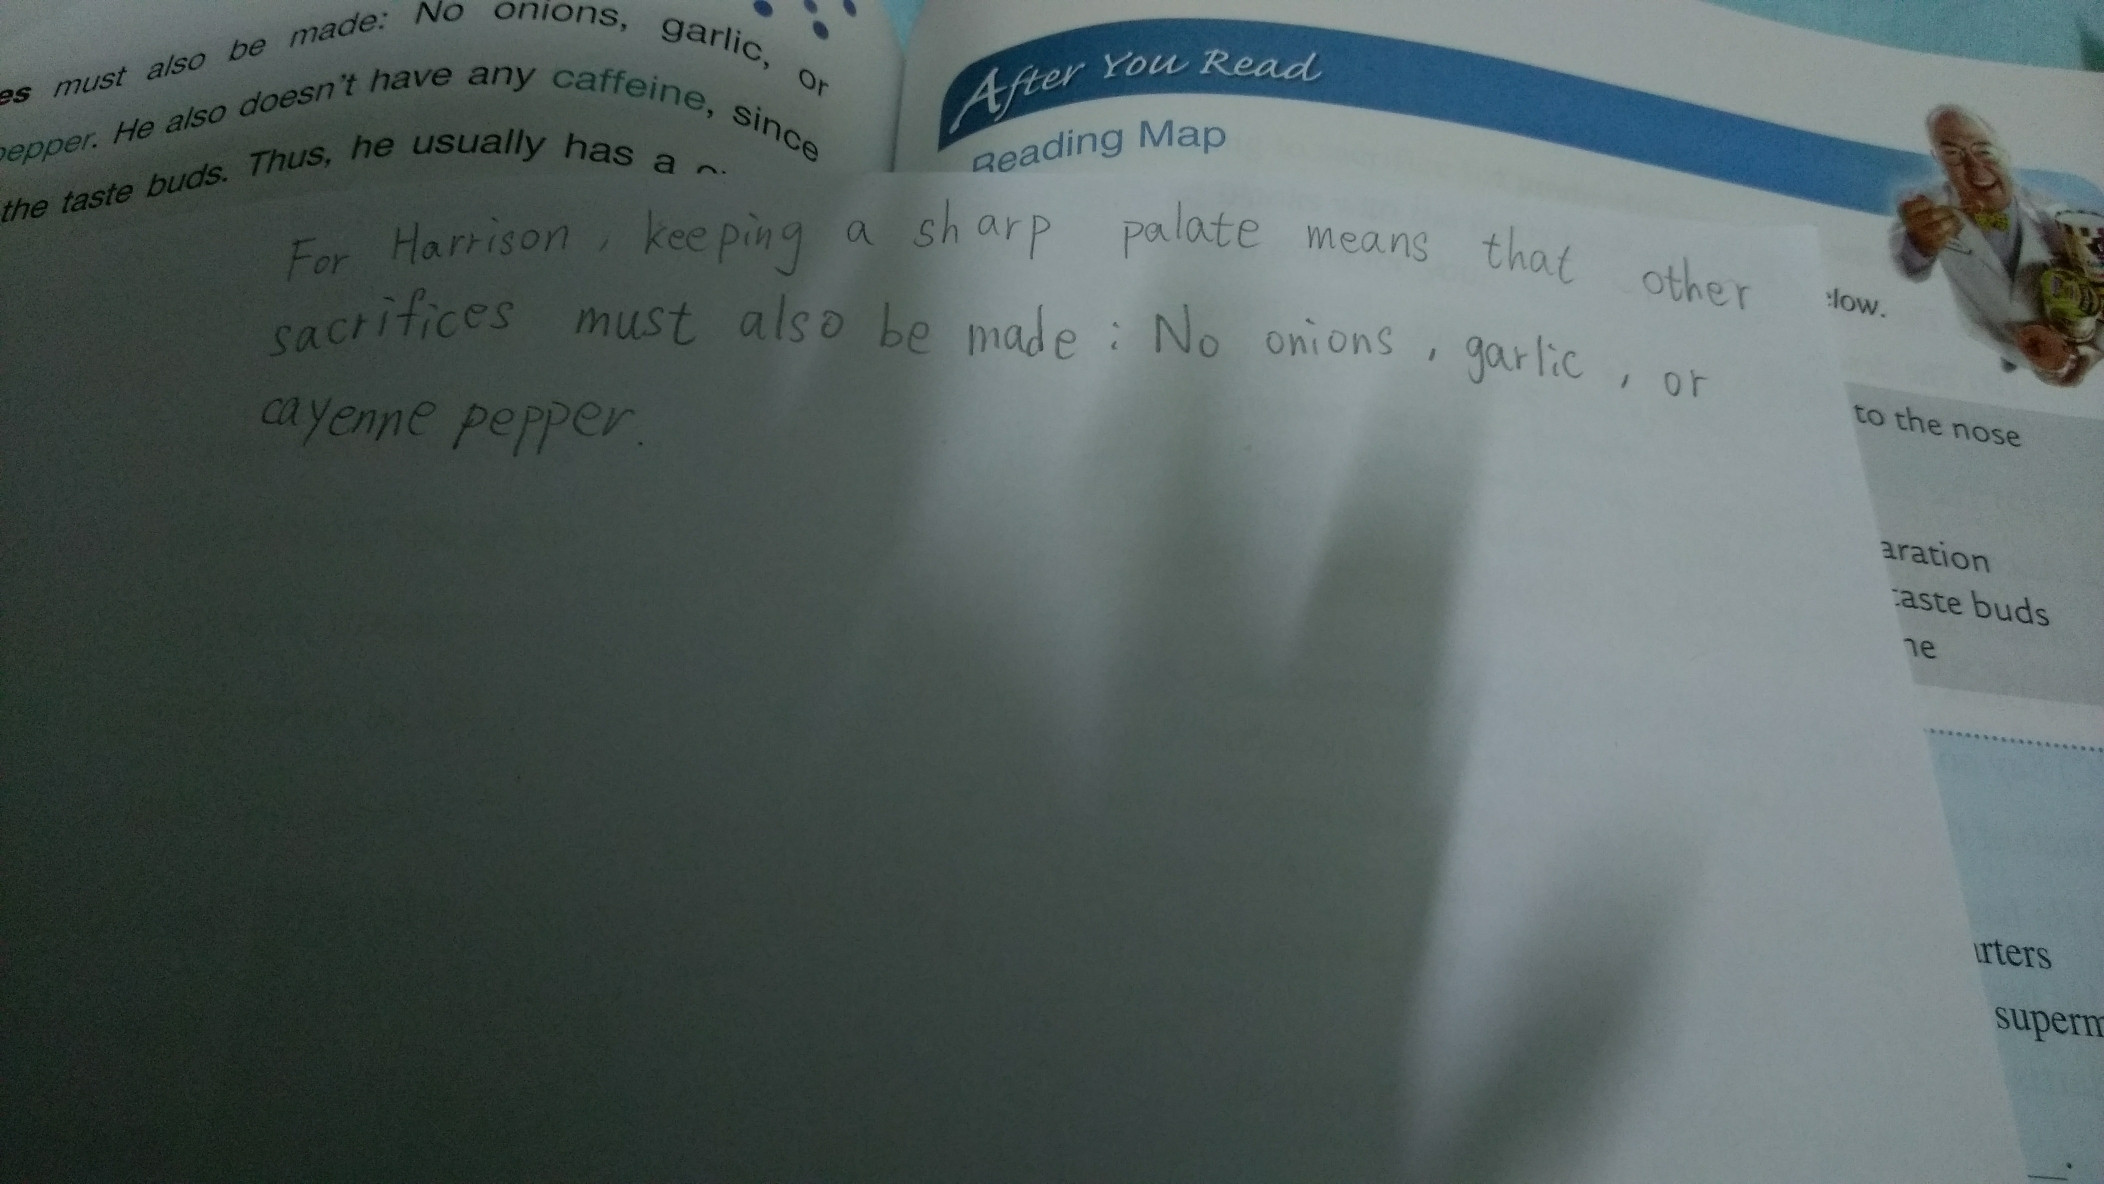 es must also be made: No onions, garlic, or
pepper. He also doesn't have any caffeine, since
the taste buds. Thus, he usually has a
After You Read
Reading Map
For Harrison, keeping a sharp palate means that other
sacrifices must also be made: No onions, garlic, or
cayenne pepper.
low.
to the nose
aration
taste buds
ne
rters
superm